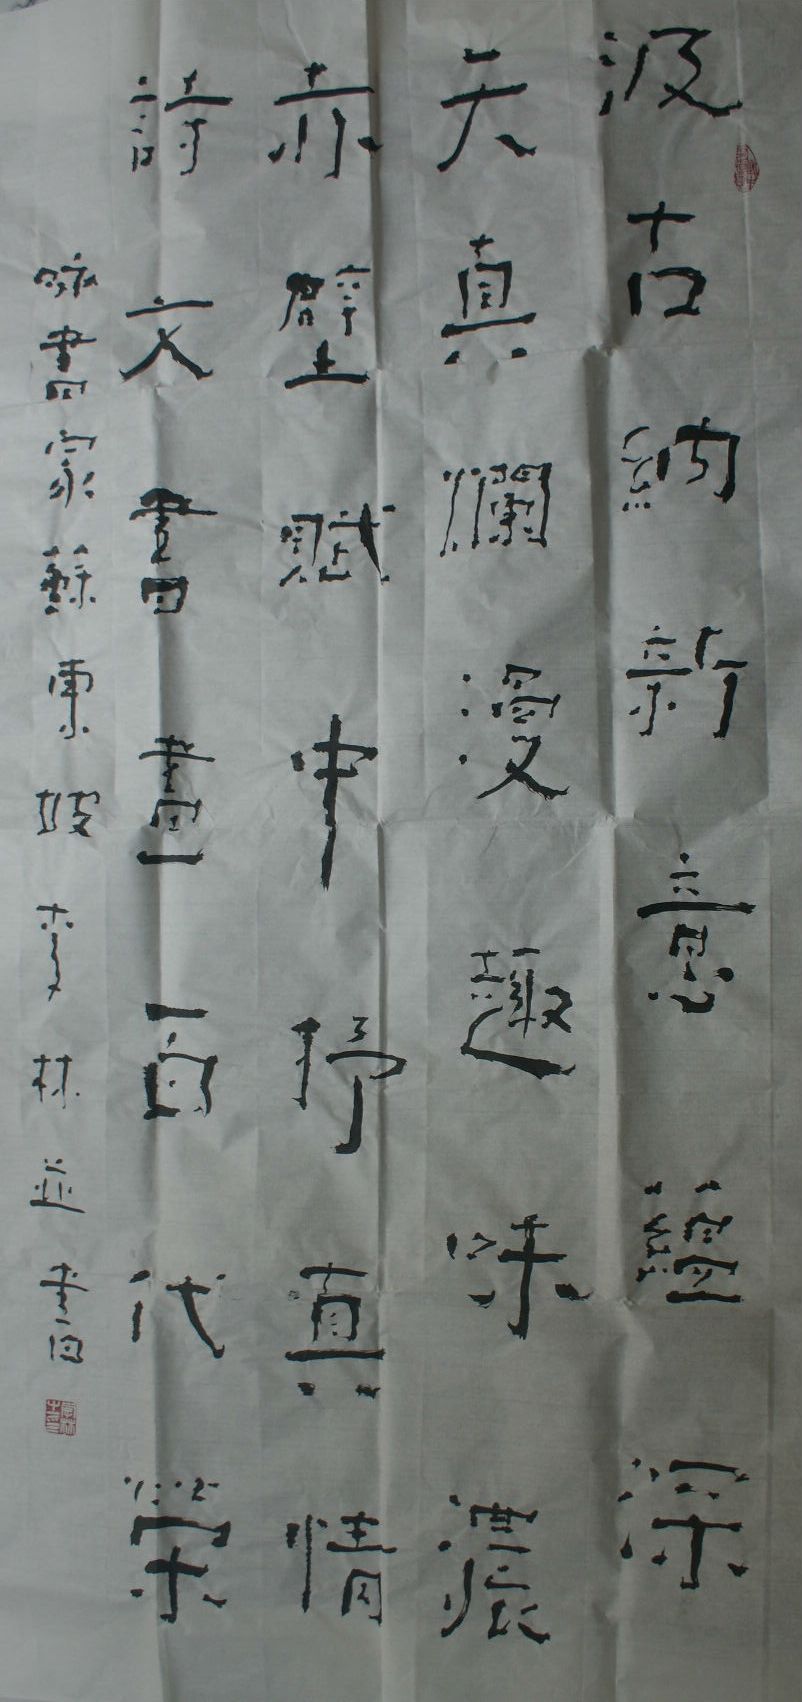 汲古納新意蘊深
天真爛漫趣味濃
赤壁賦中抒真情
詩文書畫百代榮
咏書家蘇東坡李林並書